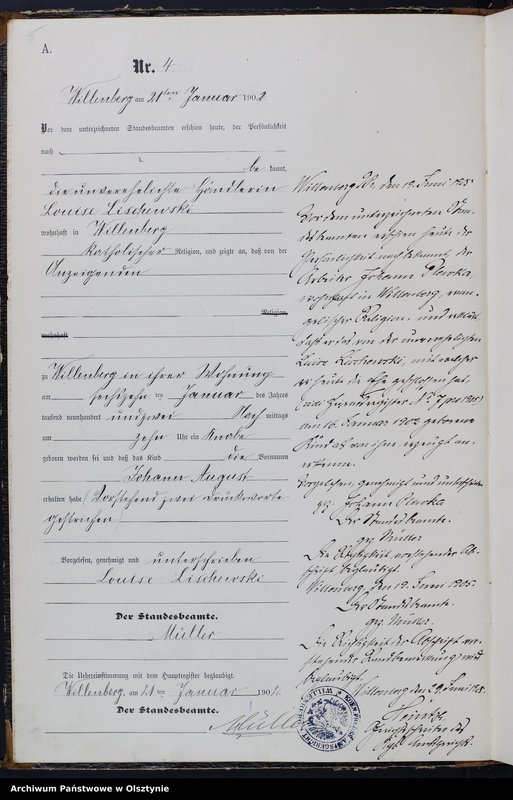 A.
Nr. 4
Willenberg am 21ten Januar 1902
Vor dem unterzeichneten Standesbeamten erschien heute, der Persönlichkeit
nach
be kannt,
die unverehelichte Händlerin
Louise Lischewski
wohnhaft in Willenberg
katholischer Religion, und zeigte an, daß von der
Anzeigenden
Religion,
wohnhaft
zu Willenberg in ihrer Wohnung
am sechszehn ten Januar des Jahres
tausend neunhundert und zwei Nach mittags
um zehn Uhr ein Knabe
geboren worden sei und daß das Kind die Vornamen
Johann August
erhalten habe (Vorstehend zwei Druckworte
gestrichen)
Vorgelesen, genehmigt und unterschrieben
Louise Lischewski
Der Standesbeamte.
Müller
Die Uebereinstimmung mit dem Hauptregister beglaubigt.
Willenberg, am 21 ten Januar 1902.
Der Standesbeamte.
Müller
Willenberg, den 12. Juni 1905.
Vor dem unterzeichneten Stan-
desbeamten erschien heute der
Persönlichkeit nach bekannt, der
Arbeiter Johann
wohnhaft in Willenberg, evan-
gelischer Religion und erklärt,
daß er das von der unverehelichten
Luise Lischewski, mit welcher
er heute die Ehe geschlossen hat
am 16. Januar 1902 geborene
Kind als von ihm erzeugt an-
erkenne.
Vorgelesen, genehmigt und unterschrieben
gez. Johann
Der Standesbeamte.
gez. Müller
Die Richtigkeit vorstehender Ab-
schrift beglaubigt.
Willenberg, den 12. Juni 1905.
Der Standesbeamte.
gez. Müller.
Die Richtigkeit der Abschrift vor-
stehender Randbemerkung wird
beglaubigt.
Willenberg, den 29. Juni 1905.
Gerichtsschreiber des
Kgl. Amtsgerichts.
Archiwum Państwowe w Olsztynie